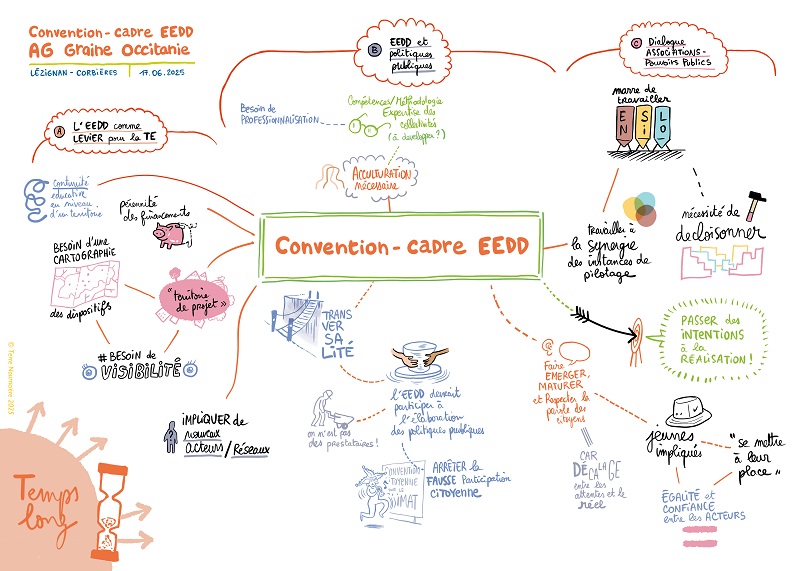 Convention-cadre EEDD
AG Graine Occitanie
LÉZIGNAN-CORBIÈRES | 17.06.2025
A
L'EEDD comme
LEVIER pour la TE
continuité
éducative
au niveau
d'un territoire
pérennité
des financements
BESOIN d'une
CARTOGRAPHIE
des dispositifs
"territoire
de projet"
# BESOIN de
VISIBILITÉ
IMPLIQUER de
nouveaux
acteurs/Réseaux
B
EEDD et
politiques
publiques
Besoin de
PROFESSIONNALISATION
Compétences/Méthodologie
Expertise des
collectivités
(à développer?)
ACCULTURATION
nécessaire
Convention-cadre EEDD
C
Dialogue
ASSOCIATIONS-
Pouvoirs Publics
marre de
travailler
EN
SI
LO
travailler à
la synergie
des instances de
pilotage
nécessité de
decloisonner
PASSER des
INTENTIONS
à la
RÉALISATION!
TRANS
VER
SA
LITÉ
l'EEDD devrait
participer à
l'élaboration
des politiques publiques
on n'est pas
des prestataires!
CONVENTION
CITOYENNE
SUR LE
CLIMAT
ARRÊTER la
FAUSSE Participation
CITOYENNE
Faire
ÉMERGER,
MATURER
et Respecter la
parole des
citoyens
CAR
DÉCALAGE
entre les
attentes et le
réel
jeunes
impliqués
"se mettre
à leur
place"
ÉGALITÉ et
CONFIANCE
entre les ACTEURS
Temps
long
© Terre Nourricière 2025